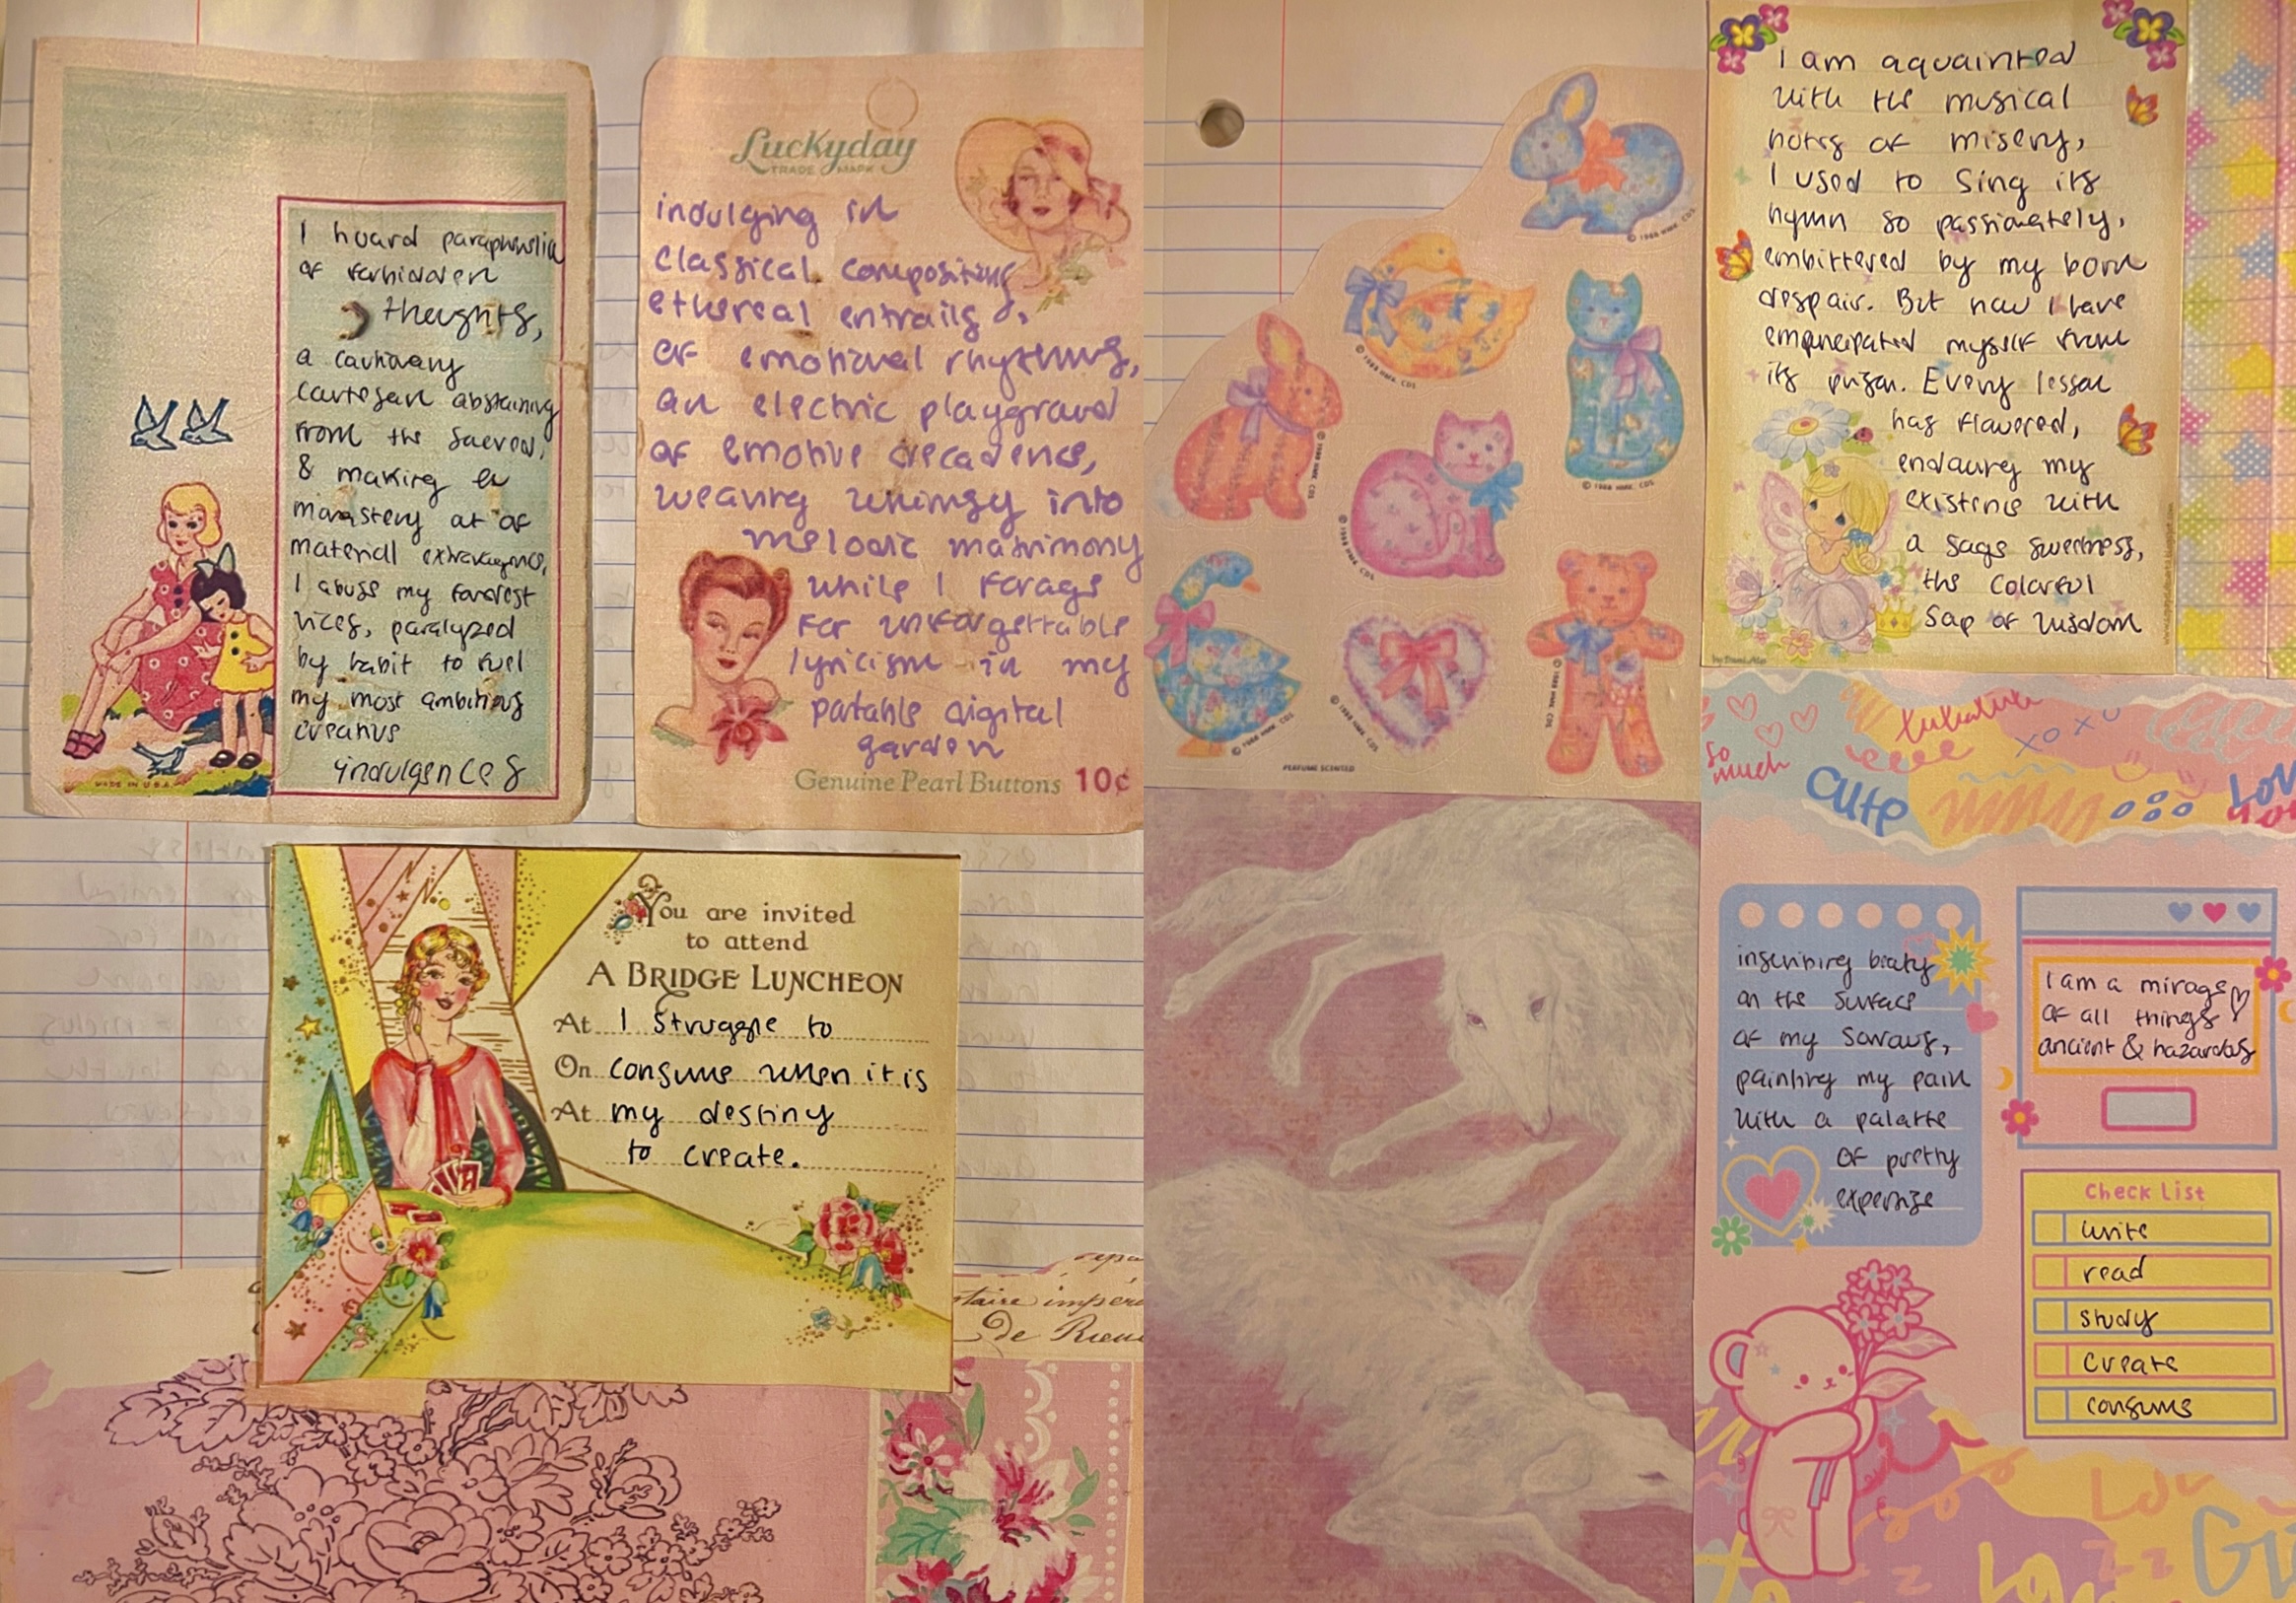 I hoard paraphernalia
of forbidden
thoughts,
a cautionary
courtesan abstaining
from the sacred,
& making a
monastery out of
material extravagance,
I abuse my fondest
vices, paralyzed
by habit to fuel
my most ambitious
creative
indulgences
MADE IN U.S.A.
Luckyday
TRADE MARK
indulging in
classical compositions,
ethereal entrails
of emotional rhythms,
an electric playground
of emotive decadence,
weaving whimsy into
melodic matrimony
while I forage
for unforgettable
lyricism in my
potable digital
garden
Genuine Pearl Buttons 10¢
You are invited
to attend
A BRIDGE LUNCHEON
At I struggle to
On consume when it is
At my destiny
to create.
de
© 1988 HMK. CDS
© 1988 HMK. CDS
© 1988 HMK. CDS
© 1988 HMK. CDS
© 1988 HMK. CDS
© 1988 HMK. CDS
© 1988 HMK. CDS
© 1988 HMK. CDS
PERFUME SCENTED
I am aquainted
with the musical
notes of misery,
I used to sing its
hymn so passionately,
embittered by my born
despair. But now I have
emancipated myself from
its prison. Every lesson
has flavored,
endowing my
existence with
a sage sweetness,
the colorful
sap of wisdom
so
much
cute
xoxo
inscribing beauty
on the surface
of my sorrows,
painting my pain
with a palatte
of pretty
expertise
I am a mirage
of all things
ancient & hazardous
Check List
write
read
study
create
consume